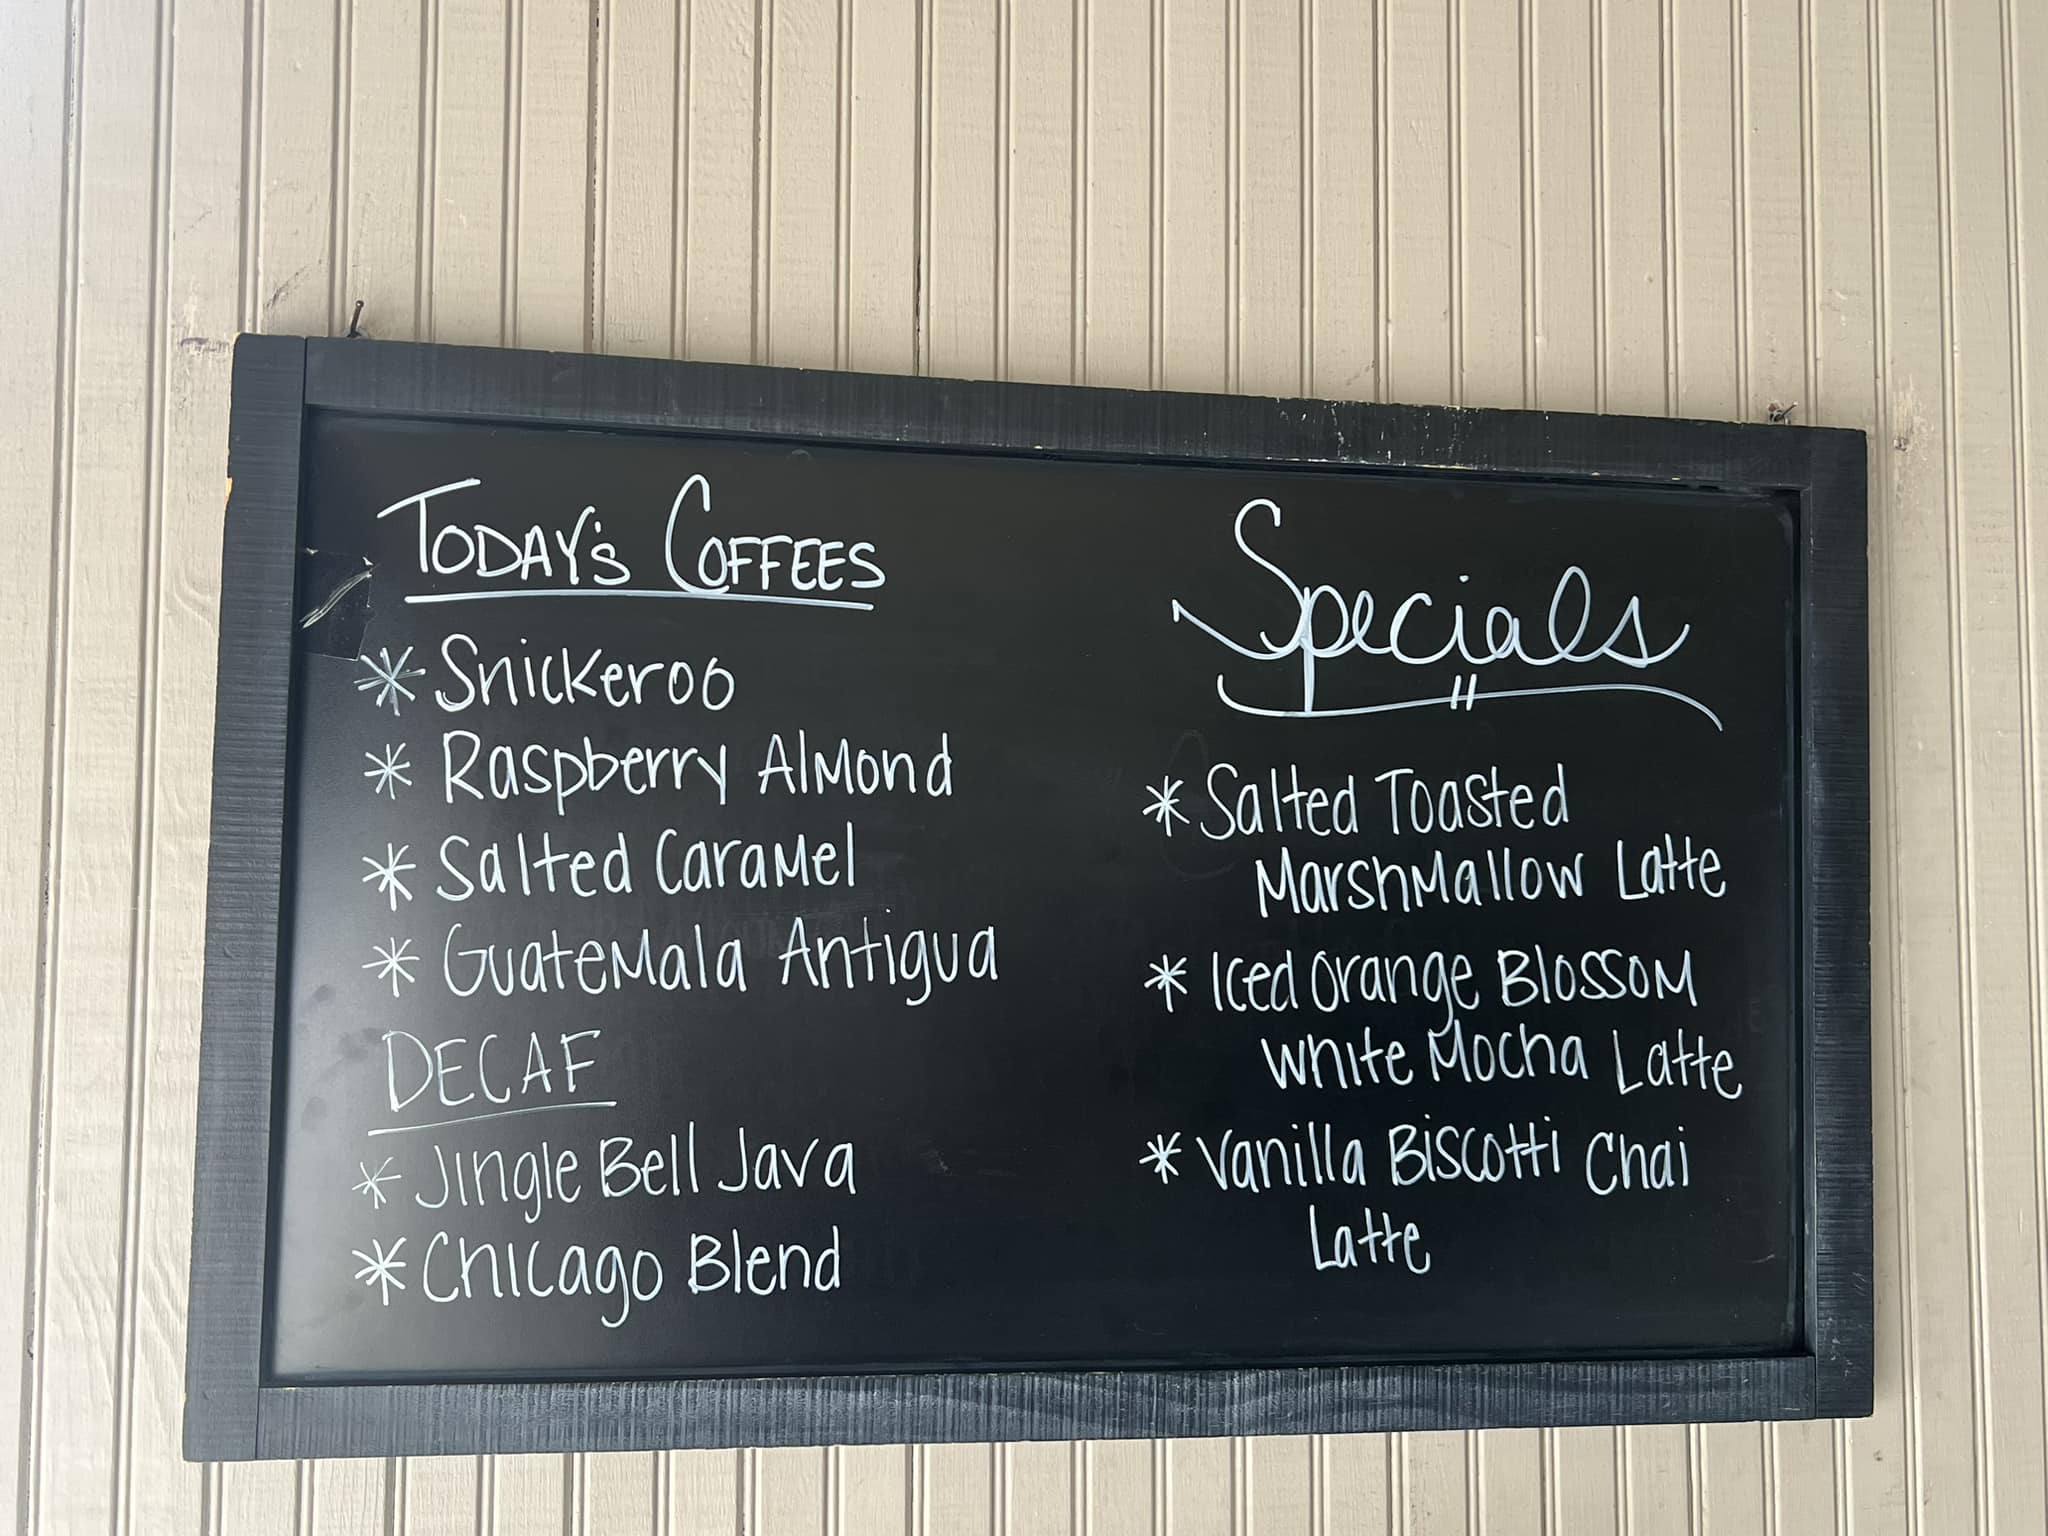 TODAY'S COFFEES
* Snickeroo
* Raspberry Almond
* Salted Caramel
* Guatemala Antigua
DECAF
* Jingle Bell Java
* Chicago Blend
Specials
* Salted Toasted
Marshmallow Latte
* Iced Orange Blossom
White Mocha Latte
* Vanilla Biscotti Chai
Latte